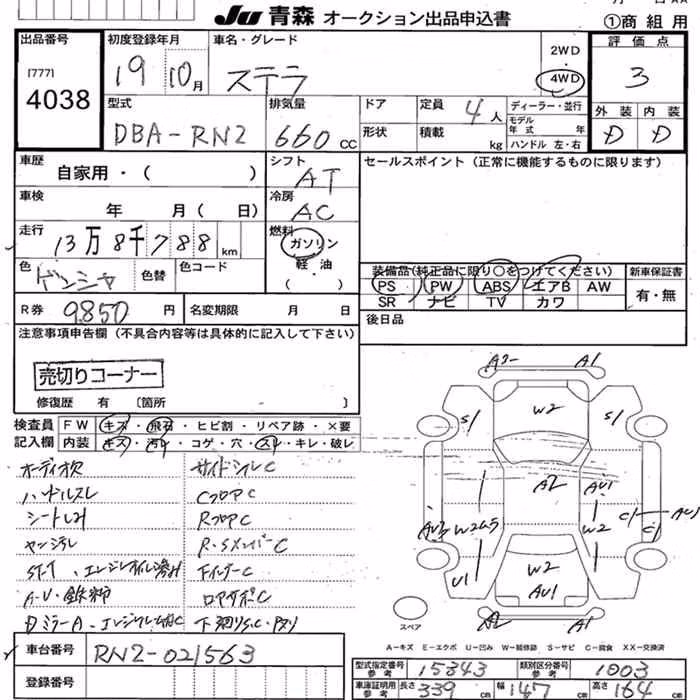 Ju 青森 オークション出品申込書
①商 組 用
出品番号
[777]
4038
初度登録年月
19 10月
車名・グレード
ステラ
2WD
4WD
評価点
3
型式
DBA-RN2
排気量
660 CC
ドア
形状
定員 4人
積載 kg
ディーラー・並行
モデル年式 年
ハンドル 左・右
外装 内装
D D
車歴
自家用・( )
シフト
AT
セールスポイント(正常に機能するものに限ります)
車検
年 月( 日)
冷房
AC
走行
13万8千788 km
燃料
ガソリン
軽・油
・( )
色 ゲンシャ 色替 色コード
装備品(純正品に限り○をつけてください)
PS PW ABS エアB AW
SR ナビ TV カワ
新車保証書
有・無
R券 9,850 円 名変期限 月 日
後日品
注意事項申告欄(不具合内容等は具体的に記入して下さい)
売切りコーナー
修復歴 有 〔箇所 〕
検査員記入欄
FW キズ・飛石・ヒビ割・リペア跡・×要
内装 キズ・汚レ・コゲ・穴・スレ・キレ・破レ
オーディオ欠
ハンドルスレ
シートしみ
サイドシルC
CフロアC
RフロアC
R・SメンバーC
A2 A1
S1 W2 S1
A2 AU1
C1 AU1
W2ムラ W2
U1 W2 AU1
A2 A1
スペア
A=キズ E=エクボ U=凹み W=補修跡 S=サビ C=腐食 XX=交換済
車台番号 RN2-021563
登録番号
型式指定番号 参考 15843 類別区分番号 参考 1003
車庫証明用 参考 長さ 339 cm 幅 147 cm 高さ 164 cm